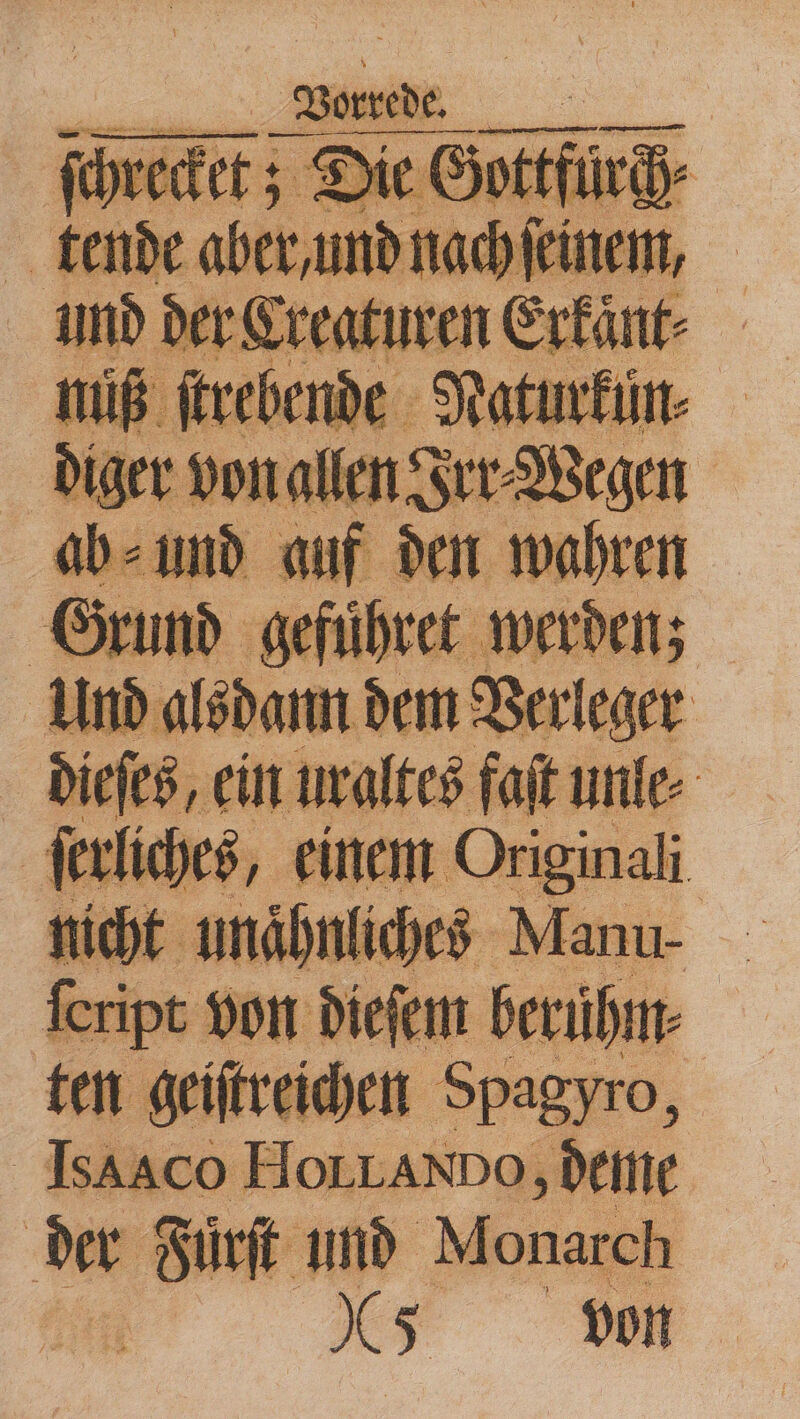 Vorrede.
ſchrecket; Die Gottfuͤrch⸗
tende aber, und nach ſeinem,
und der Creaturen Erkaͤnt⸗
nuͤß ſtrebende Naturkuͤn⸗
diger von allen Irr⸗Wegen
ab⸗ und auf den wahren
Grund gefuͤhret werden;
Und alsdann dem Verleger
dieſes, ein uraltes faſt unle⸗
ſerliches, einem Originali
nicht unaͤhnliches Manu-
ſcript von dieſem beruͤhm⸗
ten geiſtreichen Spagyro,
ISAACO HOLLANDO, deme
der Fuͤrſt und Monarch
)(5 von